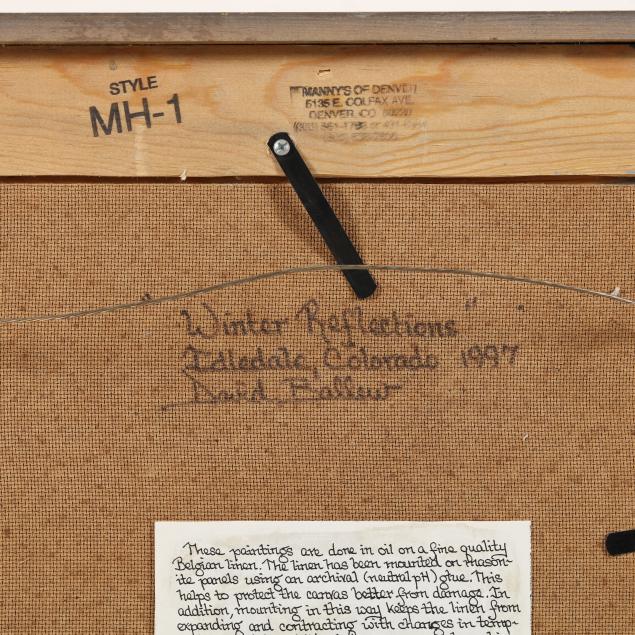 STYLE
MH-1
MANNY'S OF DENVER
6135 E. COLFAX AVE.
DENVER, CO
"Winter Reflections"
Idledale, Colorado 1997
David Ballew
These paintings are done in oil on a fine quality
Belgian linen. The linen has been mounted on mason-
ite panels using an archival (neutral pH) glue. This
helps to protect the canvas better from damage. In
addition, mounting in this way keeps the linen from
expanding and contracting with changes in temp-